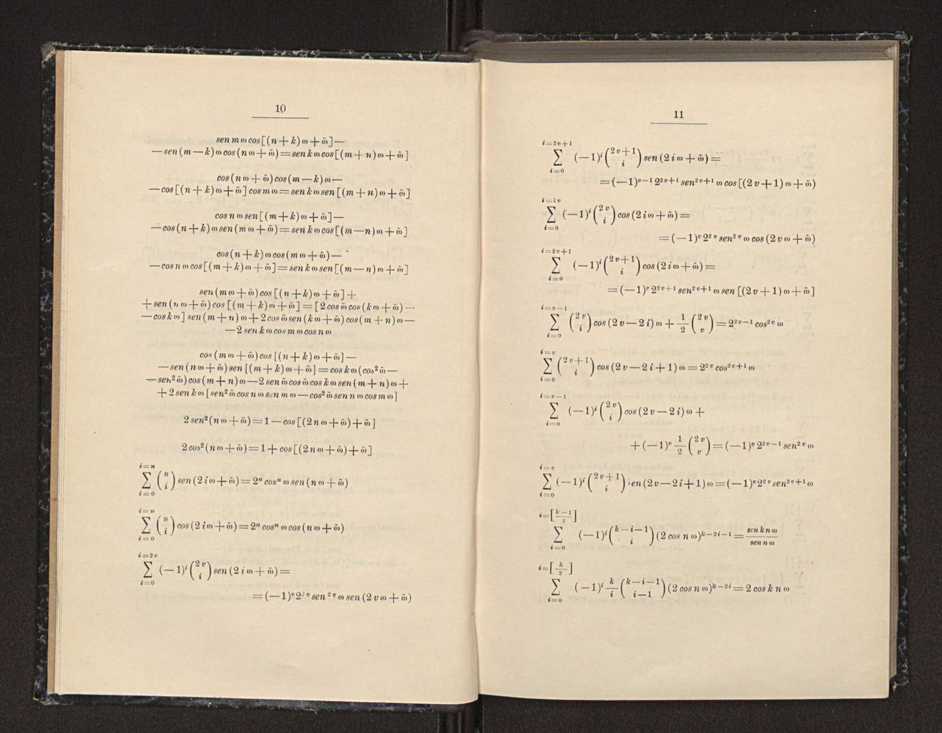 10
sen m ω cos [(n + k) ω + ω̃] —
— sen (m — k) ω cos (n ω + ω̃) = sen k ω cos [(m + n) ω + ω̃]
cos (n ω + ω̃) cos (m — k) ω —
— cos [(n + k) ω + ω̃] cos m ω = sen k ω sen [(m + n) ω + ω̃]
cos n ω sen [(m + k) ω + ω̃] —
— cos (n + k) ω sen (m ω + ω̃) = sen k ω cos [(m — n) ω + ω̃]
cos (n + k) ω cos (m ω + ω̃) —
— cos n ω cos [(m + k) ω + ω̃] = sen k ω sen [(m — n) ω + ω̃]
sen (m ω + ω̃) cos [(n + k) ω + ω̃] +
+ sen (n ω + ω̃) cos [(m + k) ω + ω̃] = [2 cos ω̃ cos (k ω + ω̃) —
— cos k ω] sen (m + n) ω + 2 cos ω̃ sen (k ω + ω̃) cos (m + n) ω —
— 2 sen k ω cos m ω cos n ω
cos (m ω + ω̃) cos [(n + k) ω + ω̃] —
— sen (n ω + ω̃) sen [(m + k) ω + ω̃] = cos k ω (cos² ω̃ —
— sen² ω̃) cos (m + n) ω — 2 sen ω̃ cos ω̃ cos k ω sen (m + n) ω +
+ 2 sen k ω [sen² ω̃ cos n ω sen m ω — cos² ω̃ sen n ω cos m ω]
2 sen² (n ω + ω̃) = 1 — cos [(2 n ω + ω̃) + ω̃]
2 cos² (n ω + ω̃) = 1 + cos [(2 n ω + ω̃) + ω̃]
i=n
∑ (n i) sen (2 i ω + ω̃) = 2ⁿ cosⁿ ω sen (n ω + ω̃)
i=0
i=n
∑ (n i) cos (2 i ω + ω̃) = 2ⁿ cosⁿ ω cos (n ω + ω̃)
i=0
i=2v
∑ (—1)^i (2v i) sen (2 i ω + ω̃) =
i=0
= (—1)^v 2^{2v} sen^{2v} ω sen (2 v ω + ω̃)
11
i=2v+1
∑ (—1)^i (2v+1 i) sen (2 i ω + ω̃) =
i=0
= (—1)^{v—1} 2^{2v+1} sen^{2v+1} ω cos [(2 v + 1) ω + ω̃)
i=2v
∑ (—1)^i (2v i) cos (2 i ω + ω̃) =
i=0
= (—1)^v 2^{2v} sen^{2v} ω cos (2 v ω + ω̃)
i=2v+1
∑ (—1)^i (2v+1 i) cos (2 i ω + ω̃) =
i=0
= (—1)^v 2^{2v+1} sen^{2v+1} ω sen [(2 v + 1) ω + ω̃]
i=v—1
∑ (2v i) cos (2 v — 2 i) ω + 1/2 (2v v) = 2^{2v—1} cos^{2v} ω
i=0
i=v
∑ (2v+1 i) cos (2 v — 2 i + 1) ω = 2^{2v} cos^{2v+1} ω
i=0
i=v—1
∑ (—1)^i (2v i) cos (2 v — 2 i) ω +
i=0
+ (—1)^v 1/2 (2v v) = (—1)^v 2^{2v—1} sen^{2v} ω
i=v
∑ (—1)^i (2v+1 i) sen (2 v — 2 i + 1) ω = (—1)^v 2^{2v} sen^{2v+1} ω
i=0
i=[k—1/2]
∑ (—1)^i (k—i—1 i) (2 cos n ω)^{k—2i—1} = sen k n ω / sen n ω
i=0
i=[k/2]
∑ (—1)^i k/i (k—i—1 i—1) (2 cos n ω)^{k—2i} = 2 cos k n ω
i=0